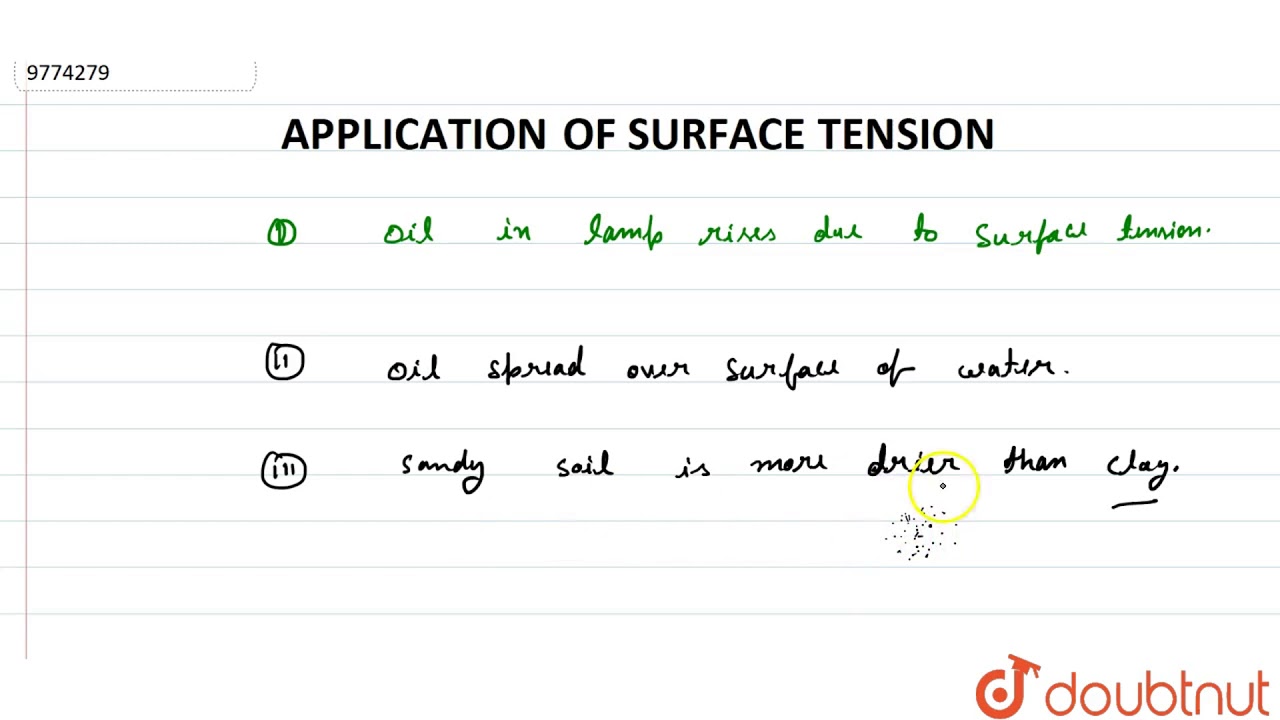 9774279
APPLICATION OF SURFACE TENSION
(i) oil in lamp rises due to surface tension.
(ii) oil spread over surface of water.
(iii) sandy soil is more drier than clay.
doubtnut